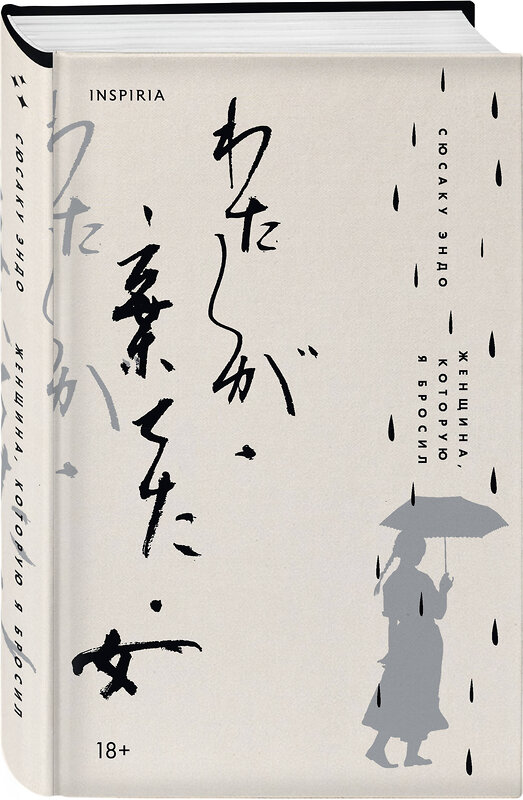 INSPIRIA
わたしが・
棄てた・
女
СЮСАКУ ЭНДО
ЖЕНЩИНА,
КОТОРУЮ
Я БРОСИЛ
18+
СЮСАКУ ЭНДО ЖЕНЩИНА, КОТОРУЮ Я БРОСИЛ
わたしが